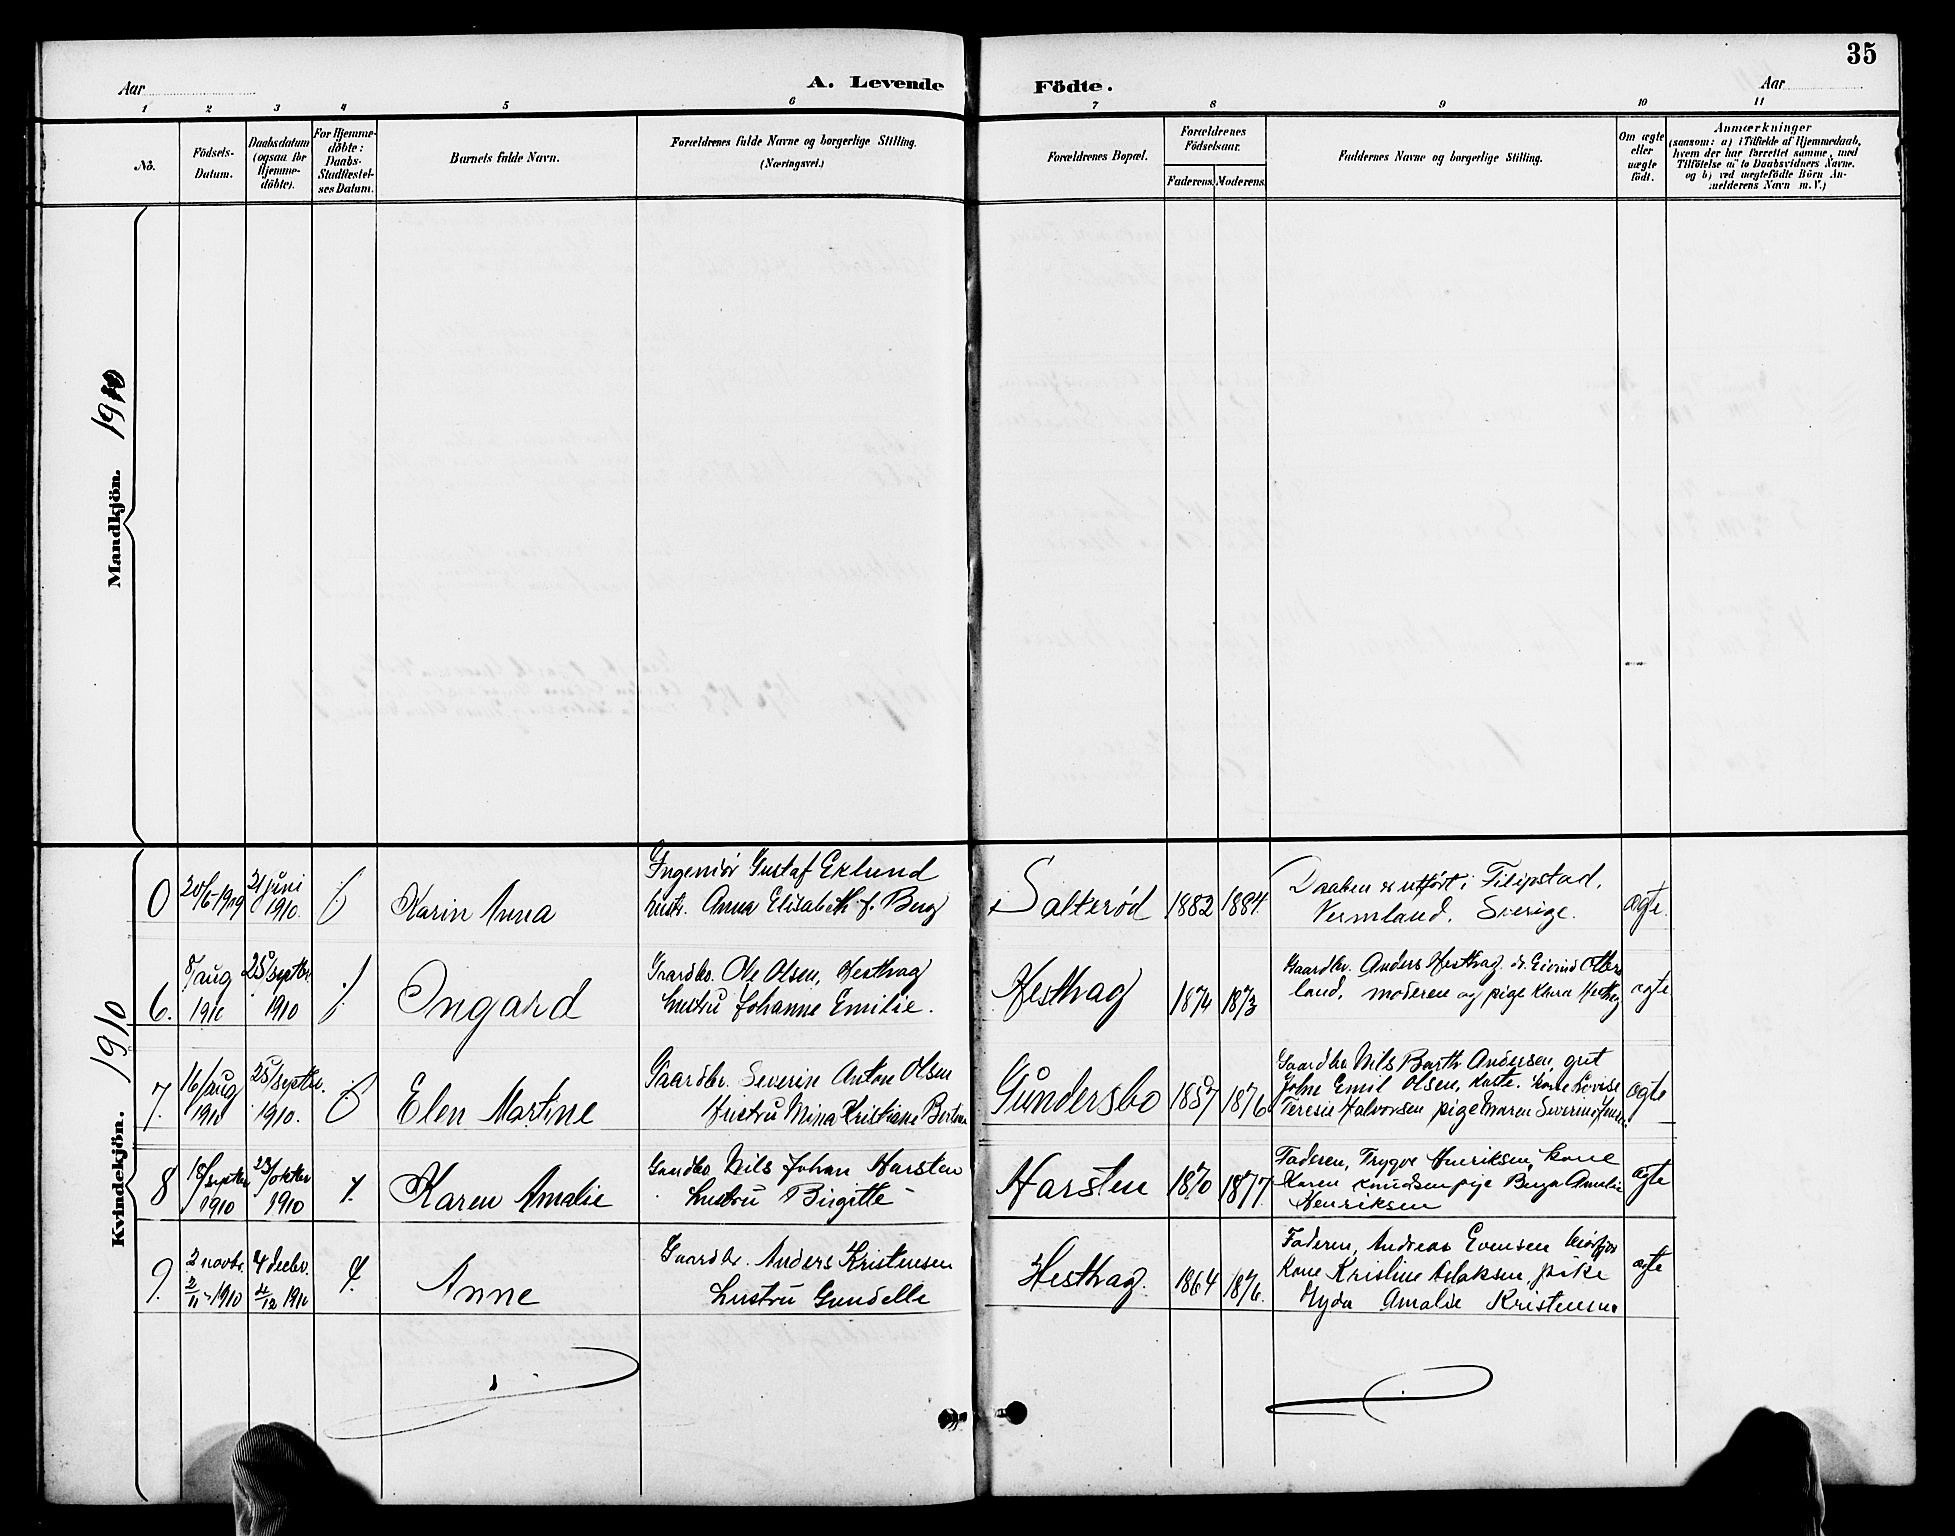 35
Aar
A. Levende
Födte.
Aar
1 2 3 4 5 6 7 8 9 10 11
No.
Födsels-
Datum.
Daabsdatum
(ogsaa for
Hjemme-
döbte).
For Hjemme-
döbte:
Daabs-
Stadfæstel-
ses Datum.
Barnets fulde Navn.
Forældrenes fulde Navne og borgerlige Stilling.
(Næringsvei.)
Forældrenes Bopæl.
Forældrenes
Födselsaar.
Faderens. Moderens.
Faddernes Navne og borgerlige Stilling.
Om ægte
eller
uægte
födt.
Anmærkninger
(saasom: a) i Tilfælde af Hjemmedaab,
hvem der har forrettet samme, med
Tilföielse af to Daabsvidners Navne.
og b) ved uægtefödte Börn An-
melderens Navn m. V.)
Mandkjön. 1910
Kvindekjön. 1910
0
20/6-1909
21 juni
1910.
Karin Anna
Ingeniör Gustaf Eklund
hustr. Anna Elisabeth f. Berg
Salteröd
1882
1884.
Daaben er utfört i Filipstad,
Vermland. Sverige.
ægte.
6.
8/aug
1910
25/septbr.
1910
Ingard
Gaardbr. Ole Olsen, Hesthag
hustru Johanne Emilie.
Hesthag
1874
1873
Gaardbr. Anders Hesthag
land, moderen og pige Klara
ægte
7.
16/aug
1910
25/septbr.
1910.
Elen Martine
Gaardbr. Severin Anton Olsen
Hustru Mina Kristiane
Gundersbo
1857
1876
Gaardbr Nils Barth Andersen, gut
Johne Emil Olsen, Kone Lovise
Teresie Halvorsen pige Maren
ægte
8
18/septbr
1910
23/oktbr
1910
Karen Amalie
Gaardbr. Nils Johan Harsten
hustru Birgitte
Harsten
1870
1877
Faderen, Trygve Henriksen, kone
Karen Knudsen pige Amalie
Henriksen
ægte
9.
2 novbr.
2/11-1910
4 decbr.
4/12 1910
Anne
Gaardbr. Anders Kristensen
hustru Gunelle
Hesthag.
1864
1876.
Faderen, Andreas Evensen
Kone Kristine Aslaksen, pike
Hyda Amalie Kristensen
ægte